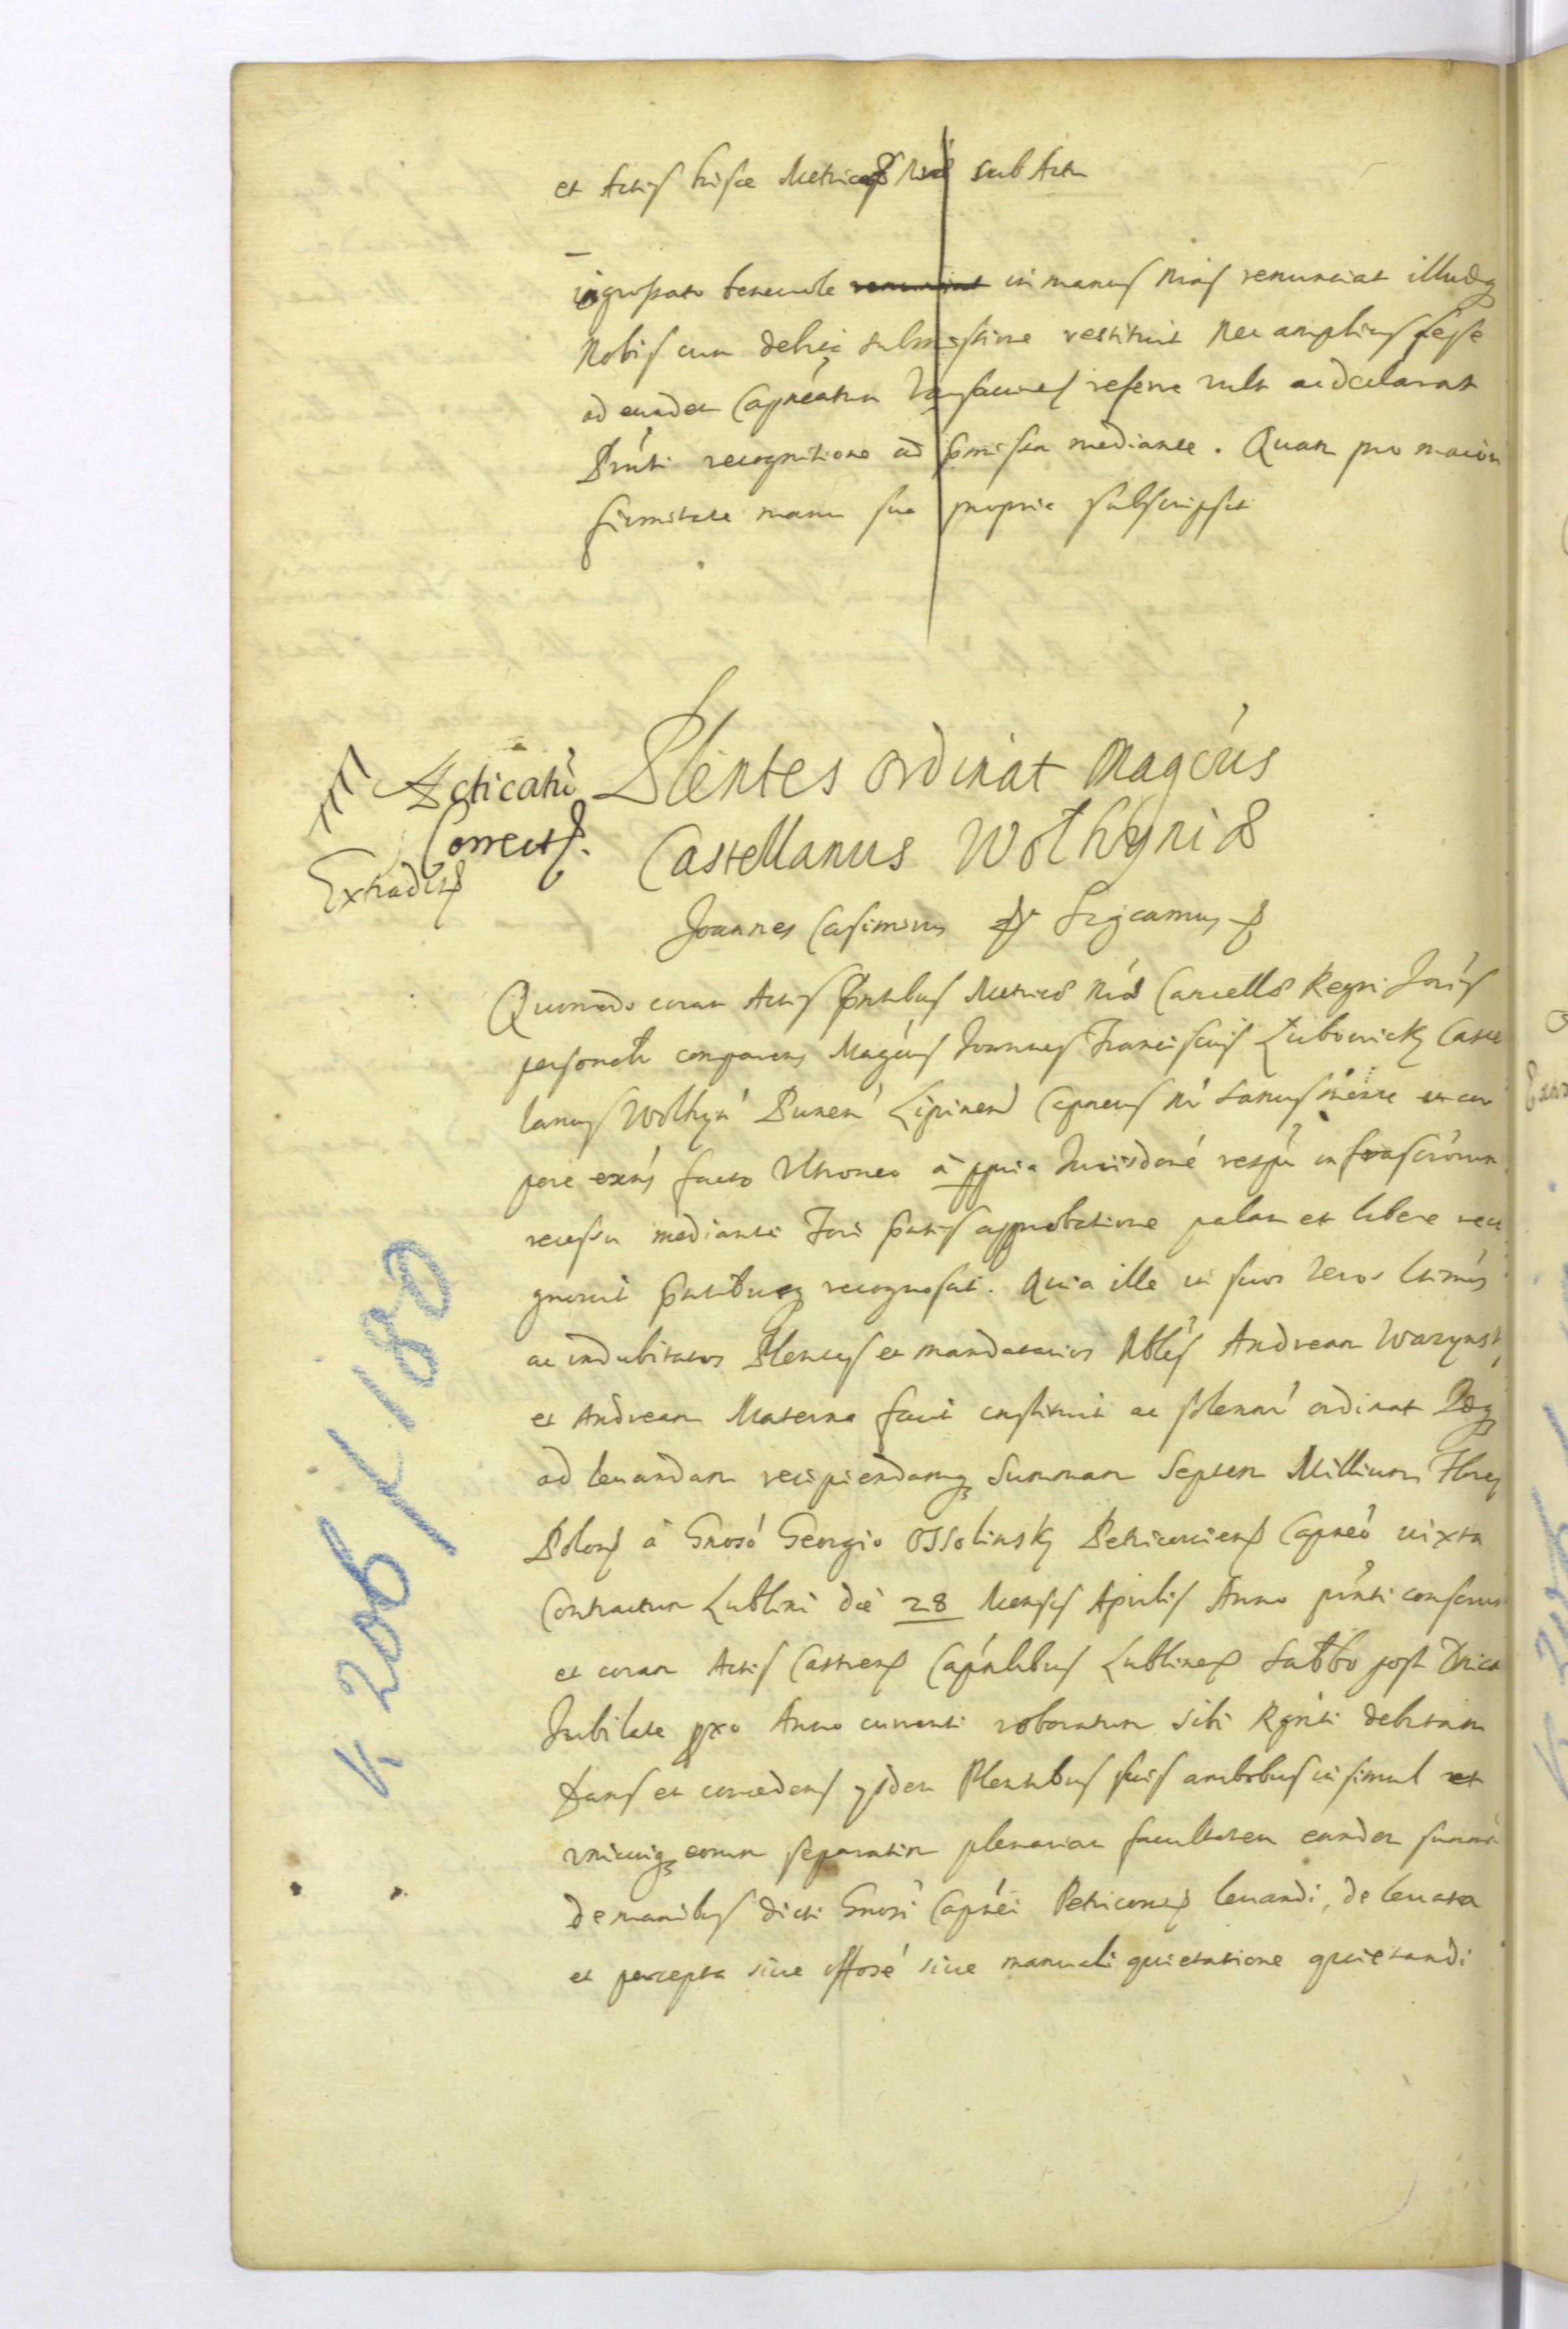 et Actis hisce Metrices Nrae sub Actu
ingrossato benevole in manus nras renunciat illudq
Nobis cum debita submissione restituit Nec amplius sese
ad eundem Capneatum referre vult ac declarat
Pnti recognitione ad pmissa mediante. Quam pro maiori
firmitate manu sua propria subscripsit
Acticatũ
Correct.
Extradit
Plentes ordinat Magcus
Castellanus Wolhyniae
Joannes Casimirus Sigcamus
Quomodo coram Actis pntibus Metrices Nrae Cancellae Regni
personalr comparens Magcus Joannes Franciscus Lubowicky Caste
lanus Wolhyn Lipinen Capneus Nr sanus mente et cor
pore exns facto Vltroneo à ppria Jurisdone respu infrascrorum
recessu mediante approbatione palam et libere reco
gnovit pntibusq recognoscit. Quia ille in suos veros ltimos
ac indubitatos Plentes et mandatarios Nbles Andream Warynsk
et Andream Materna facit constituit ac solenni ordinat
ad levandam recipiendamq Summam Septem Millium Flor
Polon à Gnoso Georgio Ossolinsky Petricovien Capneo iuxta
Contractum Lublini die 28 Mensis Aprilis Anno pnti
et coram Actis Castren Capnlibus Lublinen Sabbo post Dnica
Jubilate pxo Anno currenti roboratum Sibi Rgnti debitam
Dans et concedens ysdem Plentibus suis ambobus in simul et
vnicuiq eorum separatim plenariam facultatem eandem summã
de manibus dicti Gnosi Capnei Petricoviens levandi, de levata
et percepta sive offose sive manuali quietatione quietandi
K 206 K 180